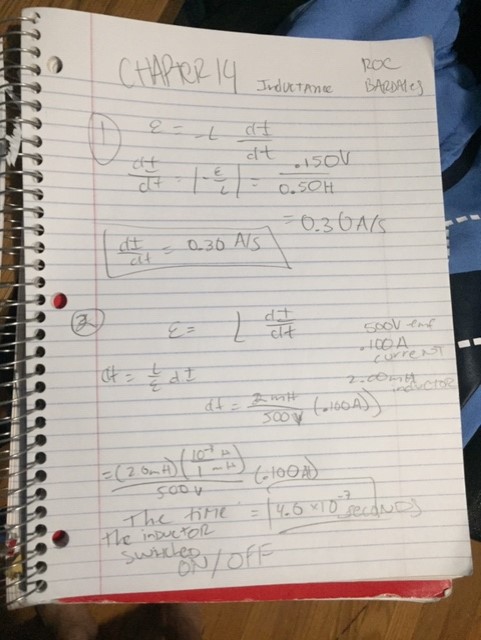 CHAPTER 14 Inductance ROC BARDALES
① ε = -L dI/dt
dI/dt = |-ε/L| = .150V/0.50H
= 0.30 A/s
dI/dt = 0.30 A/s
② ε = L dI/dt
500V emf
.100A current
2.00mH inductor
dt = L/ε dI
dt = 2mH/500V (.100A)
= (2.0mH)(10⁻³ H/1 mH)(.100A)/500V
The time = 4.0 × 10⁻⁷ seconds
the inductor
switched
ON/OFF